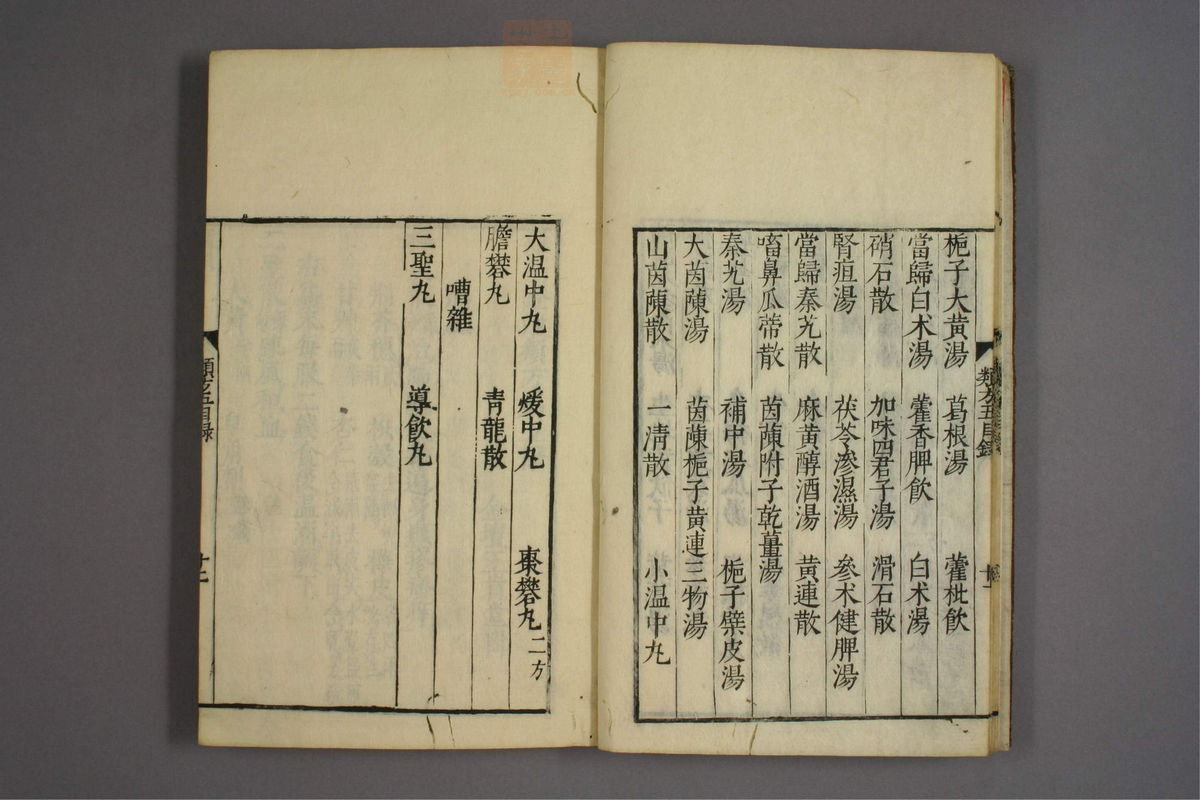 梔子大黃湯　葛根湯　藿枇飲
當歸白术湯　藿香脾飲　白术湯
硝石散　加味四君子湯　滑石散
腎疸湯　茯苓滲濕湯　參术健脾湯
當歸秦艽散　麻黃醇酒湯　黃連散
㗜鼻瓜蒂散　茵蔯附子乾薑湯
秦艽湯　補中湯　梔子檗皮湯
大茵蔯湯　茵蔯梔子黃連三物湯
山茵蔯散　一清散　小温中丸
類方五目錄
大温中丸　煖中丸　棗礬丸二方
膽礬丸　青龍散
嘈雜
三聖丸　導飲丸
類方五目錄　十二